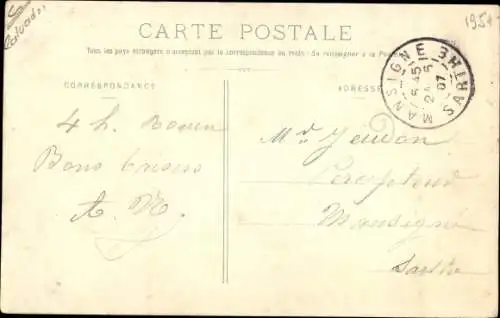 Calvados
195
CARTE POSTALE
Tous les pays étrangers n'acceptent pas la correspondance au recto (Se renseigner à la Poste)
CORRESPONDANCE
ADRESSE
MANSIGNE SARTHE
6 45
24 5
07
4 h.
Bons baisers
Mr
Percepteur
Mansigné
Sarthe